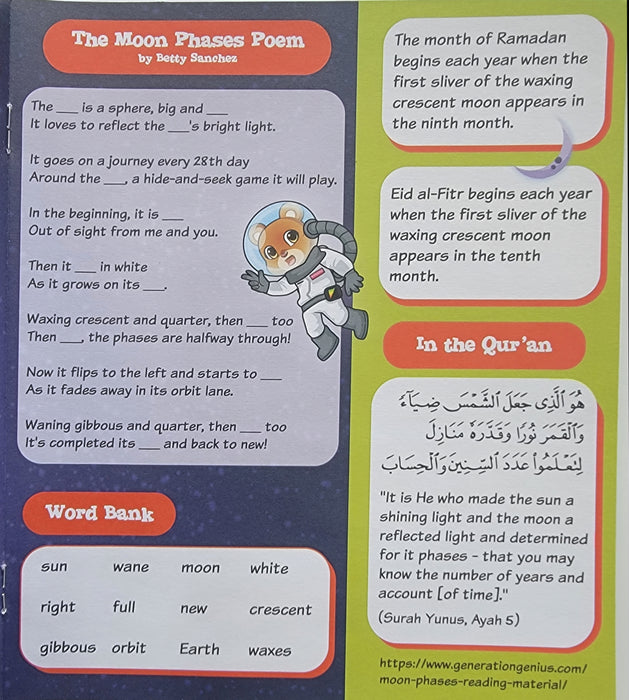 The Moon Phases Poem
by Betty Sanchez
The ___ is a sphere, big and ___
It loves to reflect the ___'s bright light.
It goes on a journey every 28th day
Around the ___, a hide-and-seek game it will play.
In the beginning, it is ___
Out of sight from me and you.
Then it ___ in white
As it grows on its ___.
Waxing crescent and quarter, then ___ too
Then ___, the phases are halfway through!
Now it flips to the left and starts to ___
As it fades away in its orbit lane.
Waning gibbous and quarter, then ___ too
It's completed its ___ and back to new!
Word Bank
sun wane moon white
right full new crescent
gibbous orbit Earth waxes
The month of Ramadan
begins each year when the
first sliver of the waxing
crescent moon appears in
the ninth month.
Eid al-Fitr begins each year
when the first sliver of the
waxing crescent moon
appears in the tenth
month.
In the Qur'an
هُوَ ٱلَّذِى جَعَلَ ٱلشَّمْسَ ضِيَآءً
وَٱلْقَمَرَ نُورًا وَقَدَّرَهُۥ مَنَازِلَ
لِتَعْلَمُوا۟ عَدَدَ ٱلسِّنِينَ وَٱلْحِسَابَ
"It is He who made the sun a
shining light and the moon a
reflected light and determined
for it phases - that you may
know the number of years and
account [of time]."
(Surah Yunus, Ayah 5)
https://www.generationgenius.com/
moon-phases-reading-material/